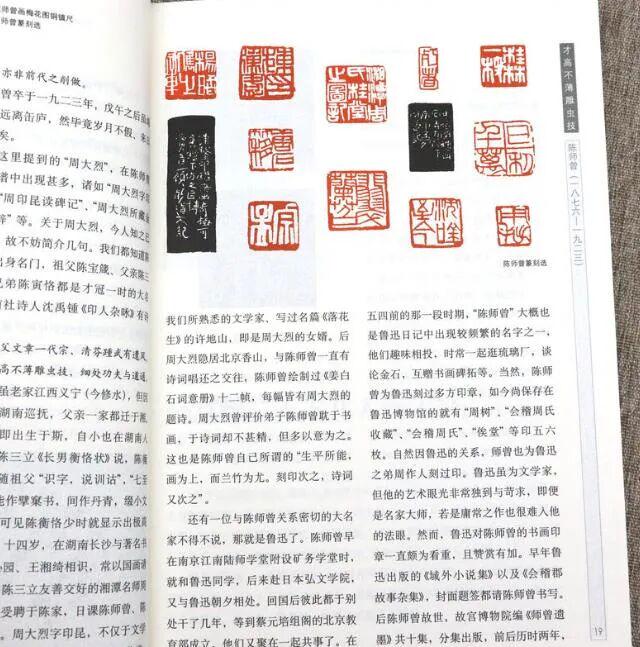 陈师曾画梅花图铜镇尺
师曾篆刻选
亦非前代之削做。
曾卒于一九二三年，戊午之后虽
远离缶庐，然毕竟岁月不假、未
矣。
这里提到的“周大烈”，在陈师曾
谱中出现甚多，诸如“周大烈字
“周印昆读碑记”、“周大烈所藏
辞”等。关于周大烈，今人知之
故不妨简介几句。我们都知道陈
出身名门，祖父陈宝箴、父亲陈三
弟陈寅恪都是才冠一时的大名
有社诗人沈禹锺《印人杂咏》有诗
父文章一代宗，清芬理武有遗风
高不薄雕虫技，细处功夫与道通
虽老家江西义宁（今修水），但因
湖南巡抚，父亲一家都迁于湘
即出生于斯，自小也在湖南
陈三立《长男衡恪状》说，陈衡
随祖父“识字，说训诂”，“七
能作擘窠书，间作丹青，缀小文
可见陈衡恪少时就显示出极高
十四岁，在湖南长沙与著名书
、王湘绮相识，常以国画请
陈三立友善交好的湘潭名师周
受聘于陈家，日课陈师曾、
周大烈字印昆，不仅于文学
才高不薄雕虫技
陈师曾（一八七六—一九二三）
陈师曾篆刻选
我们所熟悉的文学家、写过名篇《落花
生》的许地山，即是周大烈的女婿。后
周大烈隐居北京香山，与陈师曾一直有
诗词唱还之交往，陈师曾绘制过《姜白
石词意册》十二帧，每幅皆有周大烈的
题诗。周大烈曾评价弟子陈师曾耽于书
画，于诗词却不甚精，但多以意为之。
这也是陈师曾自己所谓的“生平所能，
画为上，而兰竹为尤。刻印次之，诗词
又次之”。
还有一位与陈师曾关系密切的大名
家不得不说，那就是鲁迅了。陈师曾早
在南京江南陆师学堂附设矿务学堂时，
就和鲁迅同学，后来赴日本弘文学院，
又与鲁迅朝夕相处。回国后彼此都于别
处干了几年，等到蔡元培组阁的北京教
育部成立，他们又聚在一起共事了。在
五四前的那一段时期，“陈师曾”大概也
是鲁迅日记中出现较频繁的名字之一，
他们趣味相投，时常一起逛琉璃厂，谈
论金石，互赠书画碑拓等。当然，陈师
曾为鲁迅刻过多方印章，如今尚保存在
鲁迅博物馆的就有“周树”、“会稽周氏
收藏”、“会稽周氏”、“俟堂”等印五六
枚。自然因鲁迅的关系，师曾也为鲁迅
之弟周作人刻过印。鲁迅虽为文学家，
但他的艺术眼光非常独到与苛求，即便
是名家大师，若是庸常之作也很难入他
的法眼。然而，鲁迅对陈师曾的书画印
章一直颇为看重，且赞赏有加。早年鲁
迅出版的《域外小说集》以及《会稽郡
故事杂集》，封面题签都请陈师曾书写。
后陈师曾故世，故宫博物院编《师曾遗
墨》共十集，分集出版，前后历时两年，
19